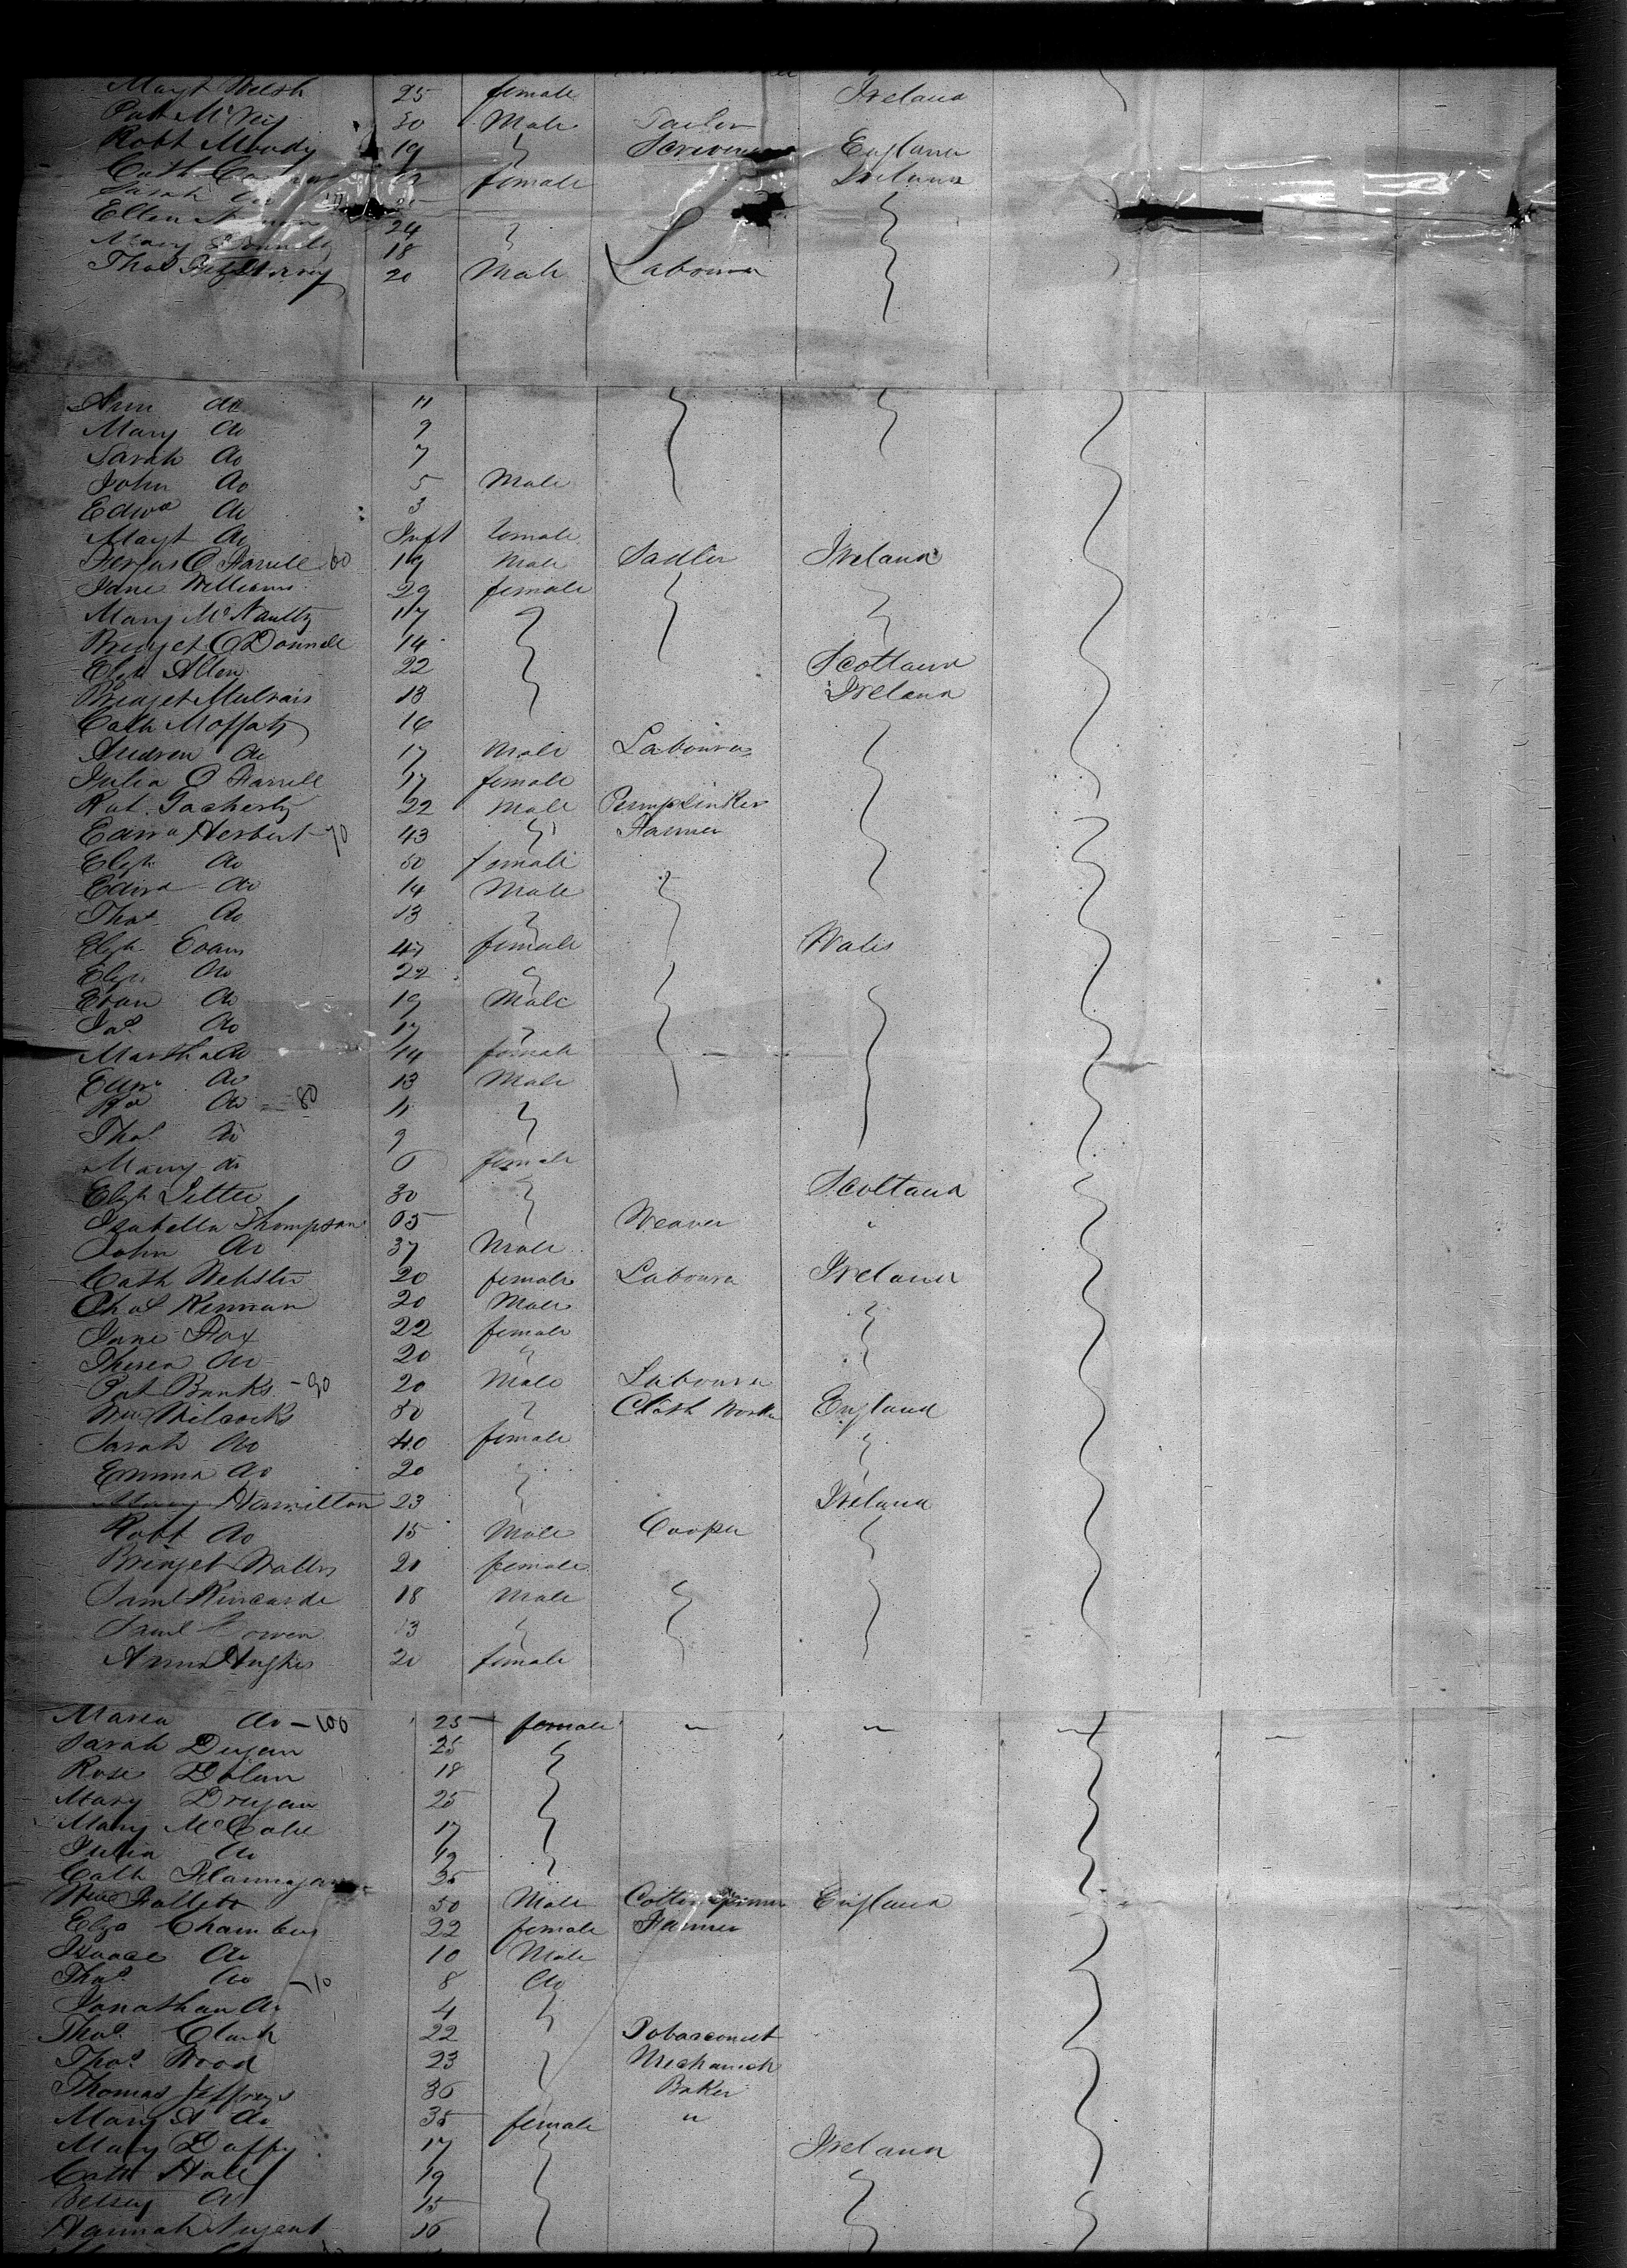 Mayt Welsh 25 female Ireland
Pat 30 Male Tailor
Robt Moody 19 England
Cath female Ireland
Sarah do
Ellen 24
Mary 18
Thos 20 Male Labourer
Ann do 11
Mary do 9
Sarah do 7
John do 5 Male
Edwd do 3
Mayt do Inft female
Fergus O Farrell 60 19 Male Sadler Ireland
Jane Williams 29 female
Mary McNaulty 17
Bridget O Donnell 14
Elizh Allen 22 Scotland
Bridget Mulvais 13 Ireland
Cath Moffatt 16
Andrew do 17 Male Labourer
Julia O Farrell 17 female
Pat 22 Male
Edwd Herbert 70 43 Farmer
Elizh do 50 female
Edwd do 14 Male
Thos do 13
Elizh Evans 47 female Wales
Elizh do 22
Evan do 19 Male
Jas do 17
Martha do 14 female
do 13 Male
do 80 11
Thos do 9
Mary do 6 female
Elizh 30 Scotland
Isabella Thompson 65 Weaver "
John do 37 Male
Cath Webster 20 female Labourer Ireland
Thos Kernan 20 Male
Jane Fox 22 female
Theresa do 20
Pat Banks - 90 20 Male Labourer
Wm Wilcocks 50 Cloth Worker England
Sarah do 40 female
Emma do 20
Mary Hamilton 23 Ireland
Robt do 15 Male Cooper
Bridget Walls 20 female
Saml Kincarde 18 Male
Saml 13
Anna Hughes 20 female
Maria do - 100 25 female " " " "
Sarah Dugan 25
Rose Dolan 18
Mary Drugan 25
Mary McCabe 17
Julia do
Cath Flannigan 35
Wm Follett 50 Male Cotton Spinner England
Eliza Chambers 22 female Farmer
Isaac do 10 Male
Thos do - 10 8 do
Jonathan do 4
Thos Clark 22 Tobacconist
Thos Wood 23 Mechanick
Thomas Jeffreys 36 Baker
Mary A do 35 female "
Mary Duffy 17 Ireland
Cath Hall 19
Betsey do 15
Hannah Nugent 16